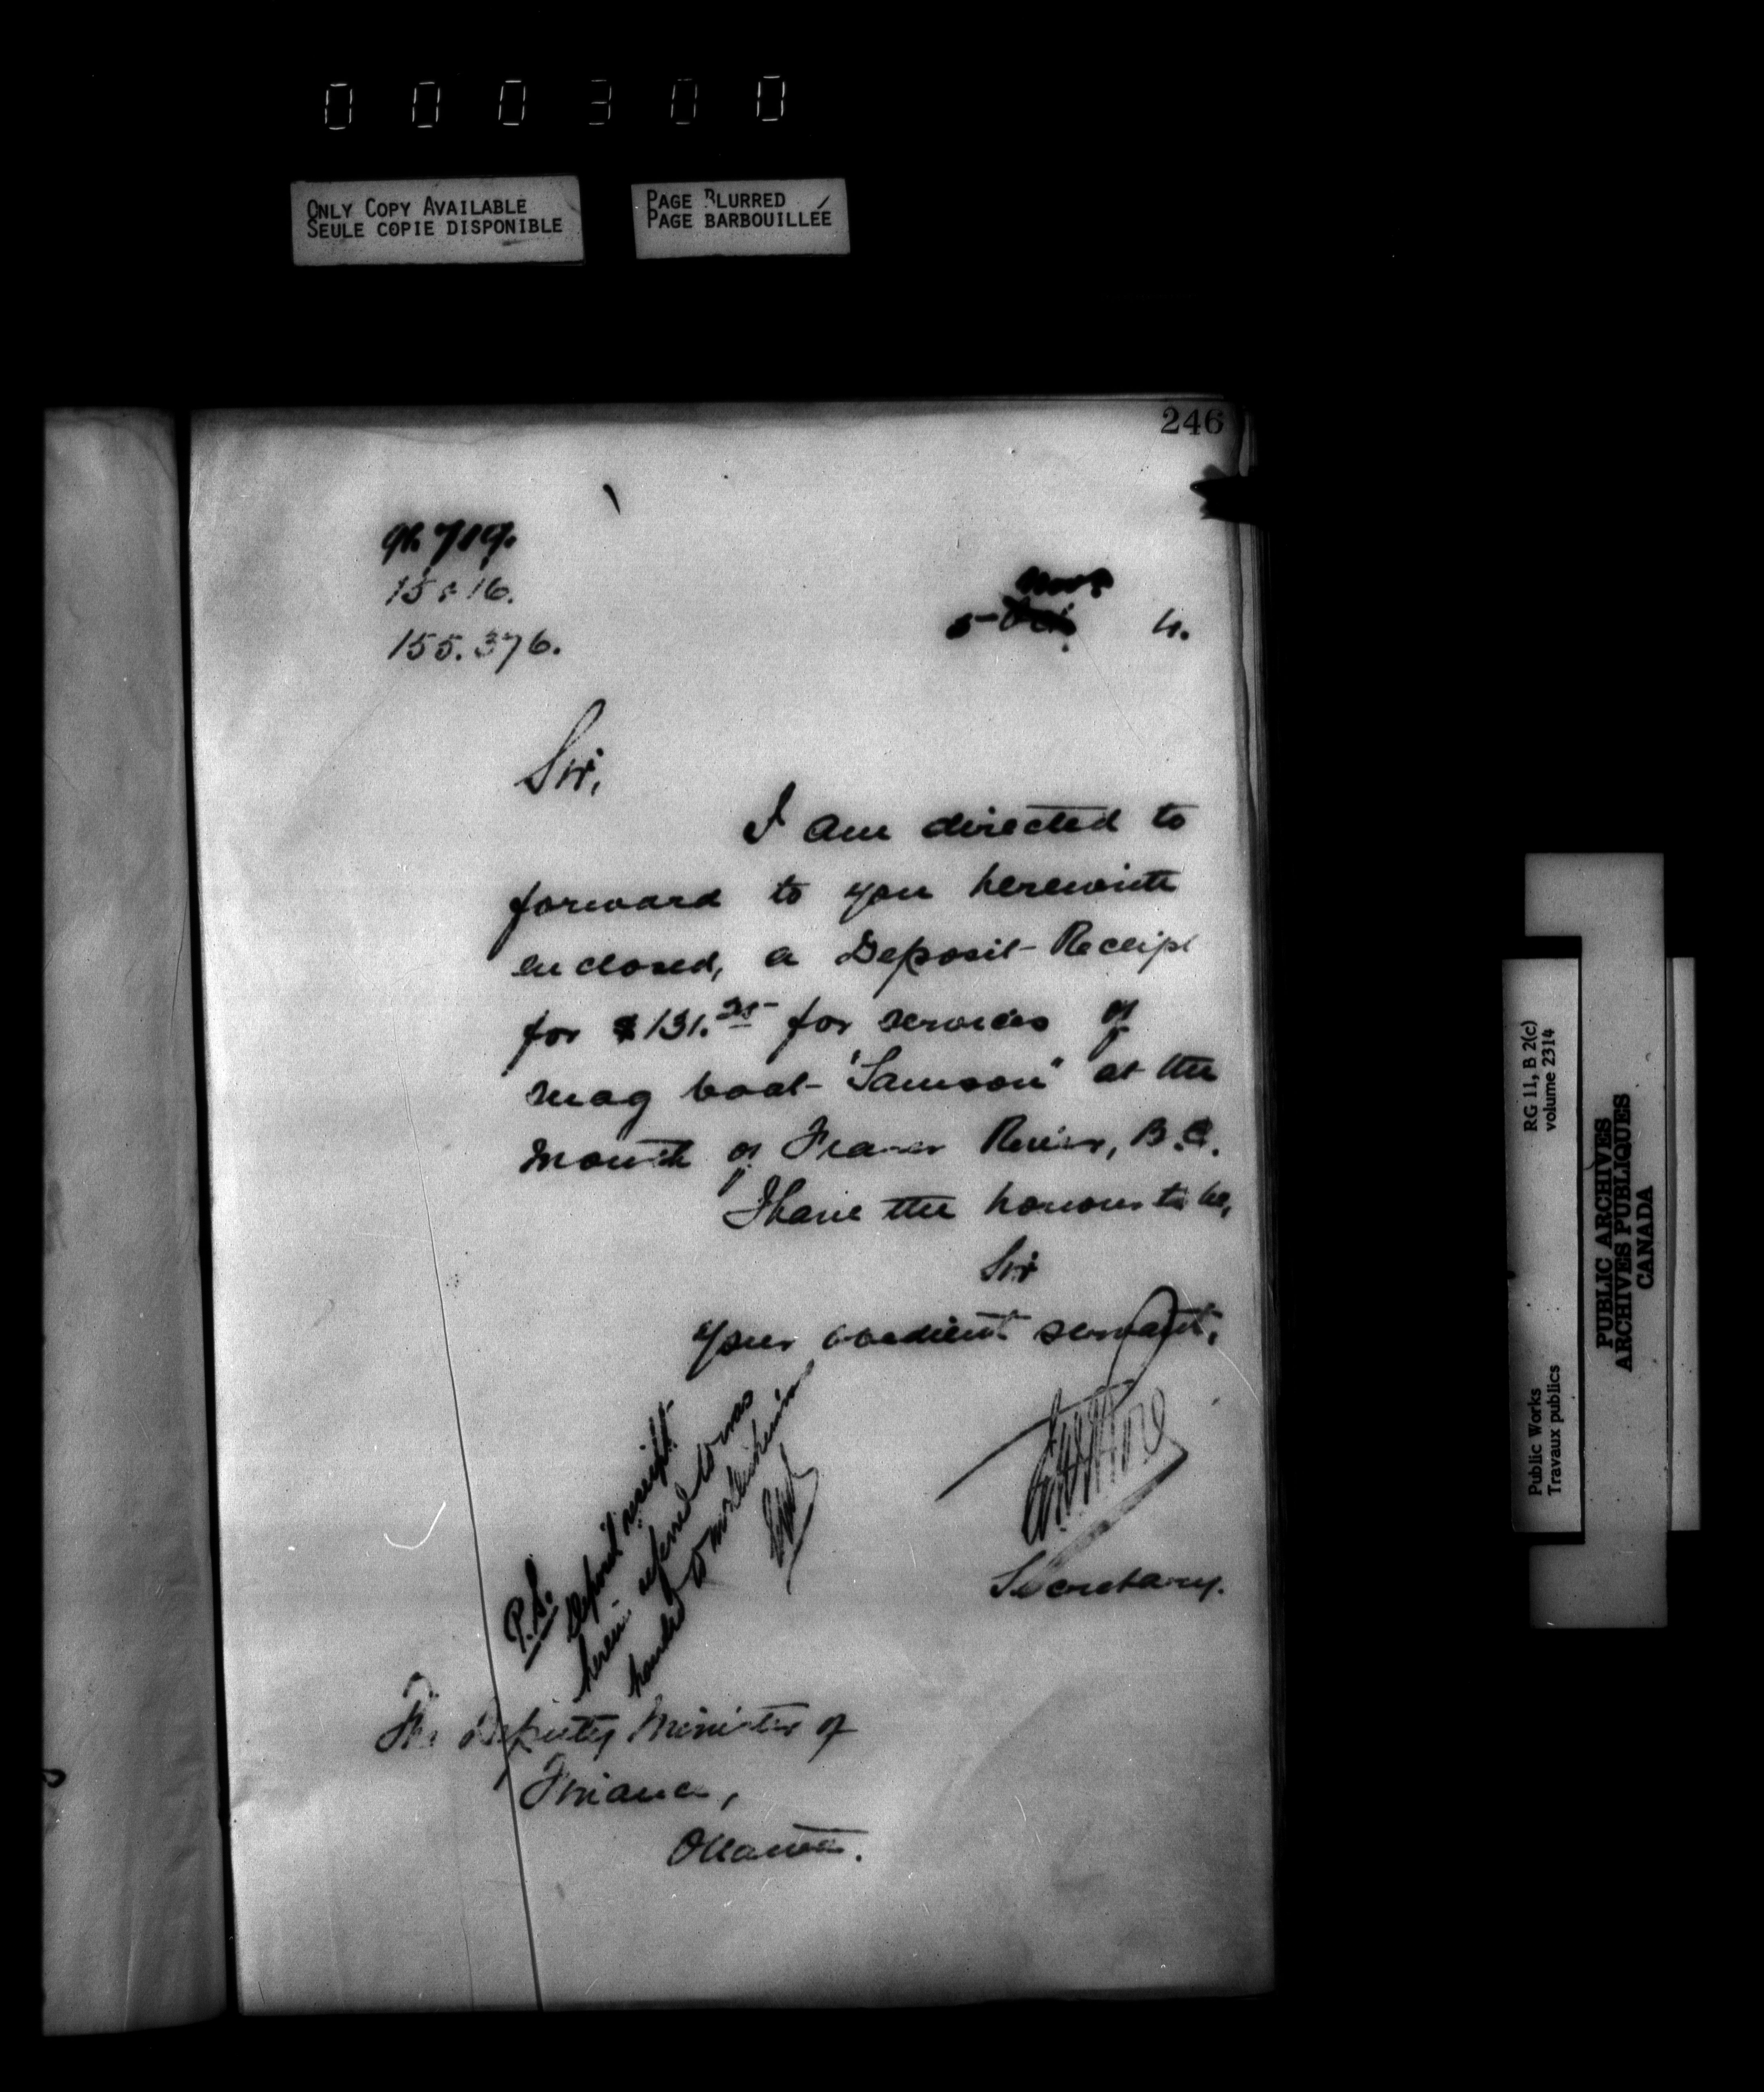 000300
ONLY COPY AVAILABLE
SEULE COPIE DISPONIBLE
PAGE BLURRED
PAGE BARBOUILLÉE
246
719.
155.376.
Nov
5 Oct 4.
Sir,
I am directed to
forward to you herewith
enclosed, a Deposit Receipt
for $131.25 for services of
snag boat "Samson" at the
mouth of Fraser River, B.C.
I have the honour to be,
Sir
Your obedient servant,
Secretary.
P.S.
Deposit receipt
herein referred to was
handed to Mr
The Deputy Minister of
Finance,
Ottawa.
RG 11, B 2(c)
volume 2314
Public Works
Travaux publics
PUBLIC ARCHIVES
ARCHIVES PUBLIQUES
CANADA